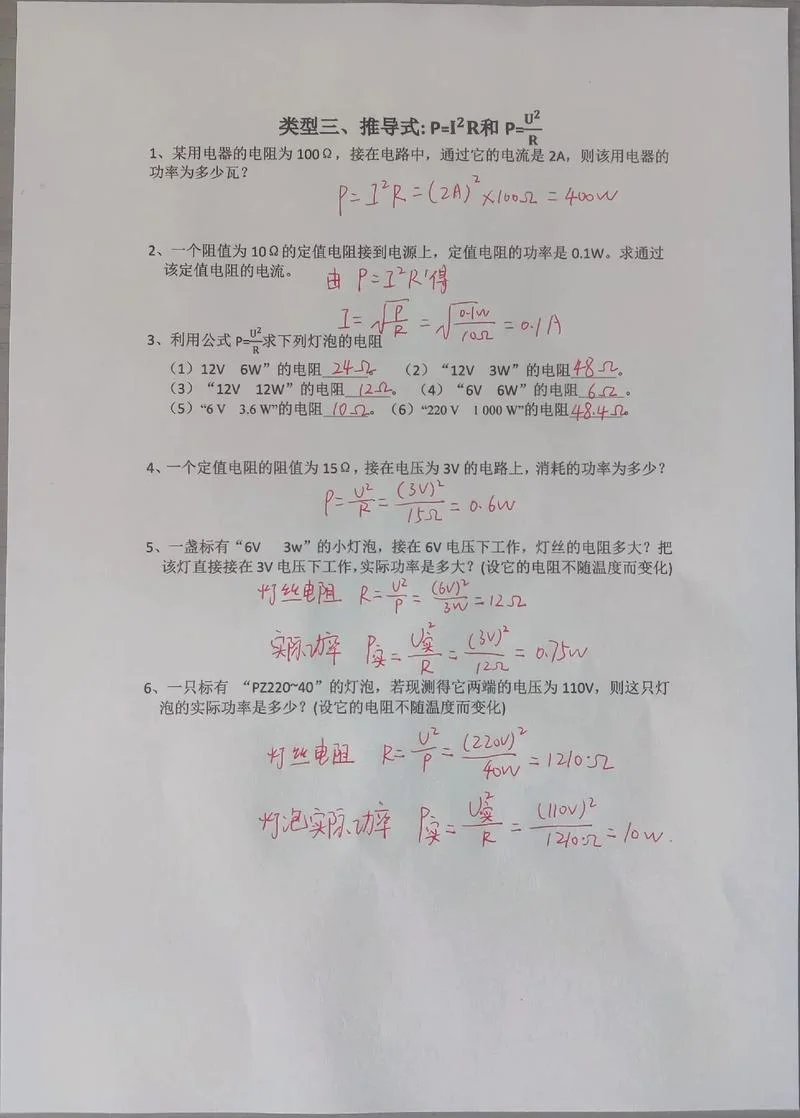 类型三、推导式: P=I²R和 P=U²/R
1、某用电器的电阻为 100Ω，接在电路中，通过它的电流是 2A，则该用电器的
功率为多少瓦？
P=I²R=(2A)²×100Ω=400W
2、一个阻值为 10Ω的定值电阻接到电源上，定值电阻的功率是 0.1W。求通过
该定值电阻的电流。
由 P=I²R得
I=√(P/R)=√(0.1W/10Ω)=0.1A
3、利用公式 P=U²/R求下列灯泡的电阻
（1）12V 6W”的电阻 24Ω。 （2）“12V 3W”的电阻48Ω。
（3）“12V 12W”的电阻 12Ω。 （4）“6V 6W”的电阻 6Ω。
（5）“6 V 3.6 W”的电阻 10Ω。（6）“220 V 1 000 W”的电阻48.4Ω。
4、一个定值电阻的阻值为 15Ω，接在电压为 3V 的电路上，消耗的功率为多少？
P=U²/R=(3V)²/15Ω=0.6W
5、一盏标有“6V 3w”的小灯泡，接在 6V 电压下工作，灯丝的电阻多大？把
该灯直接接在 3V 电压下工作，实际功率是多大？(设它的电阻不随温度而变化)
灯丝电阻 R=U²/P=(6V)²/3W=12Ω
实际功率 P实=U实²/R=(3V)²/12Ω=0.75W
6、一只标有 “PZ220~40”的灯泡，若现测得它两端的电压为 110V，则这只灯
泡的实际功率是多少？(设它的电阻不随温度而变化)
灯丝电阻 R=U²/P=(220V)²/40W=1210Ω
灯泡实际功率 P实=U实²/R=(110V)²/1210Ω=10W.